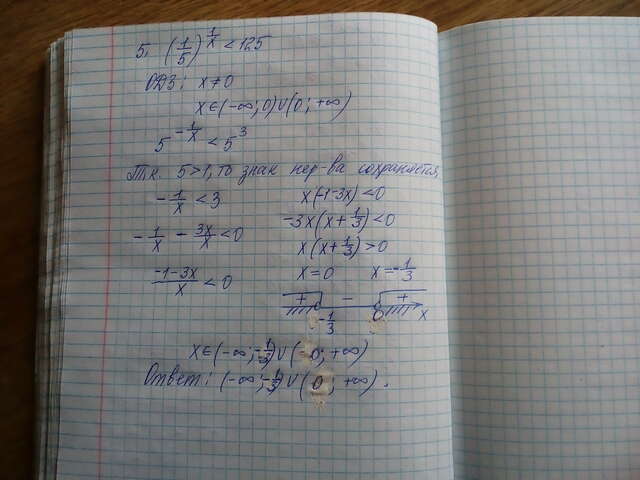 5. (1/5)^(1/x) < 125
ОДЗ: x ≠ 0
x∈(-∞; 0)∪(0; +∞)
5^(-1/x) < 5^3
Т.к. 5>1, то знак нер-ва сохраняется,
-1/x < 3
-1/x - 3x/x < 0
(-1-3x)/x < 0
x(-1-3x)<0
-3x(x+1/3)<0
x(x+1/3)>0
x=0 x=-1/3
+ - +
-1/3 0 x
x∈(-∞; -1/3)∪(0; +∞)
Ответ: (-∞; -1/3)∪(0; +∞).